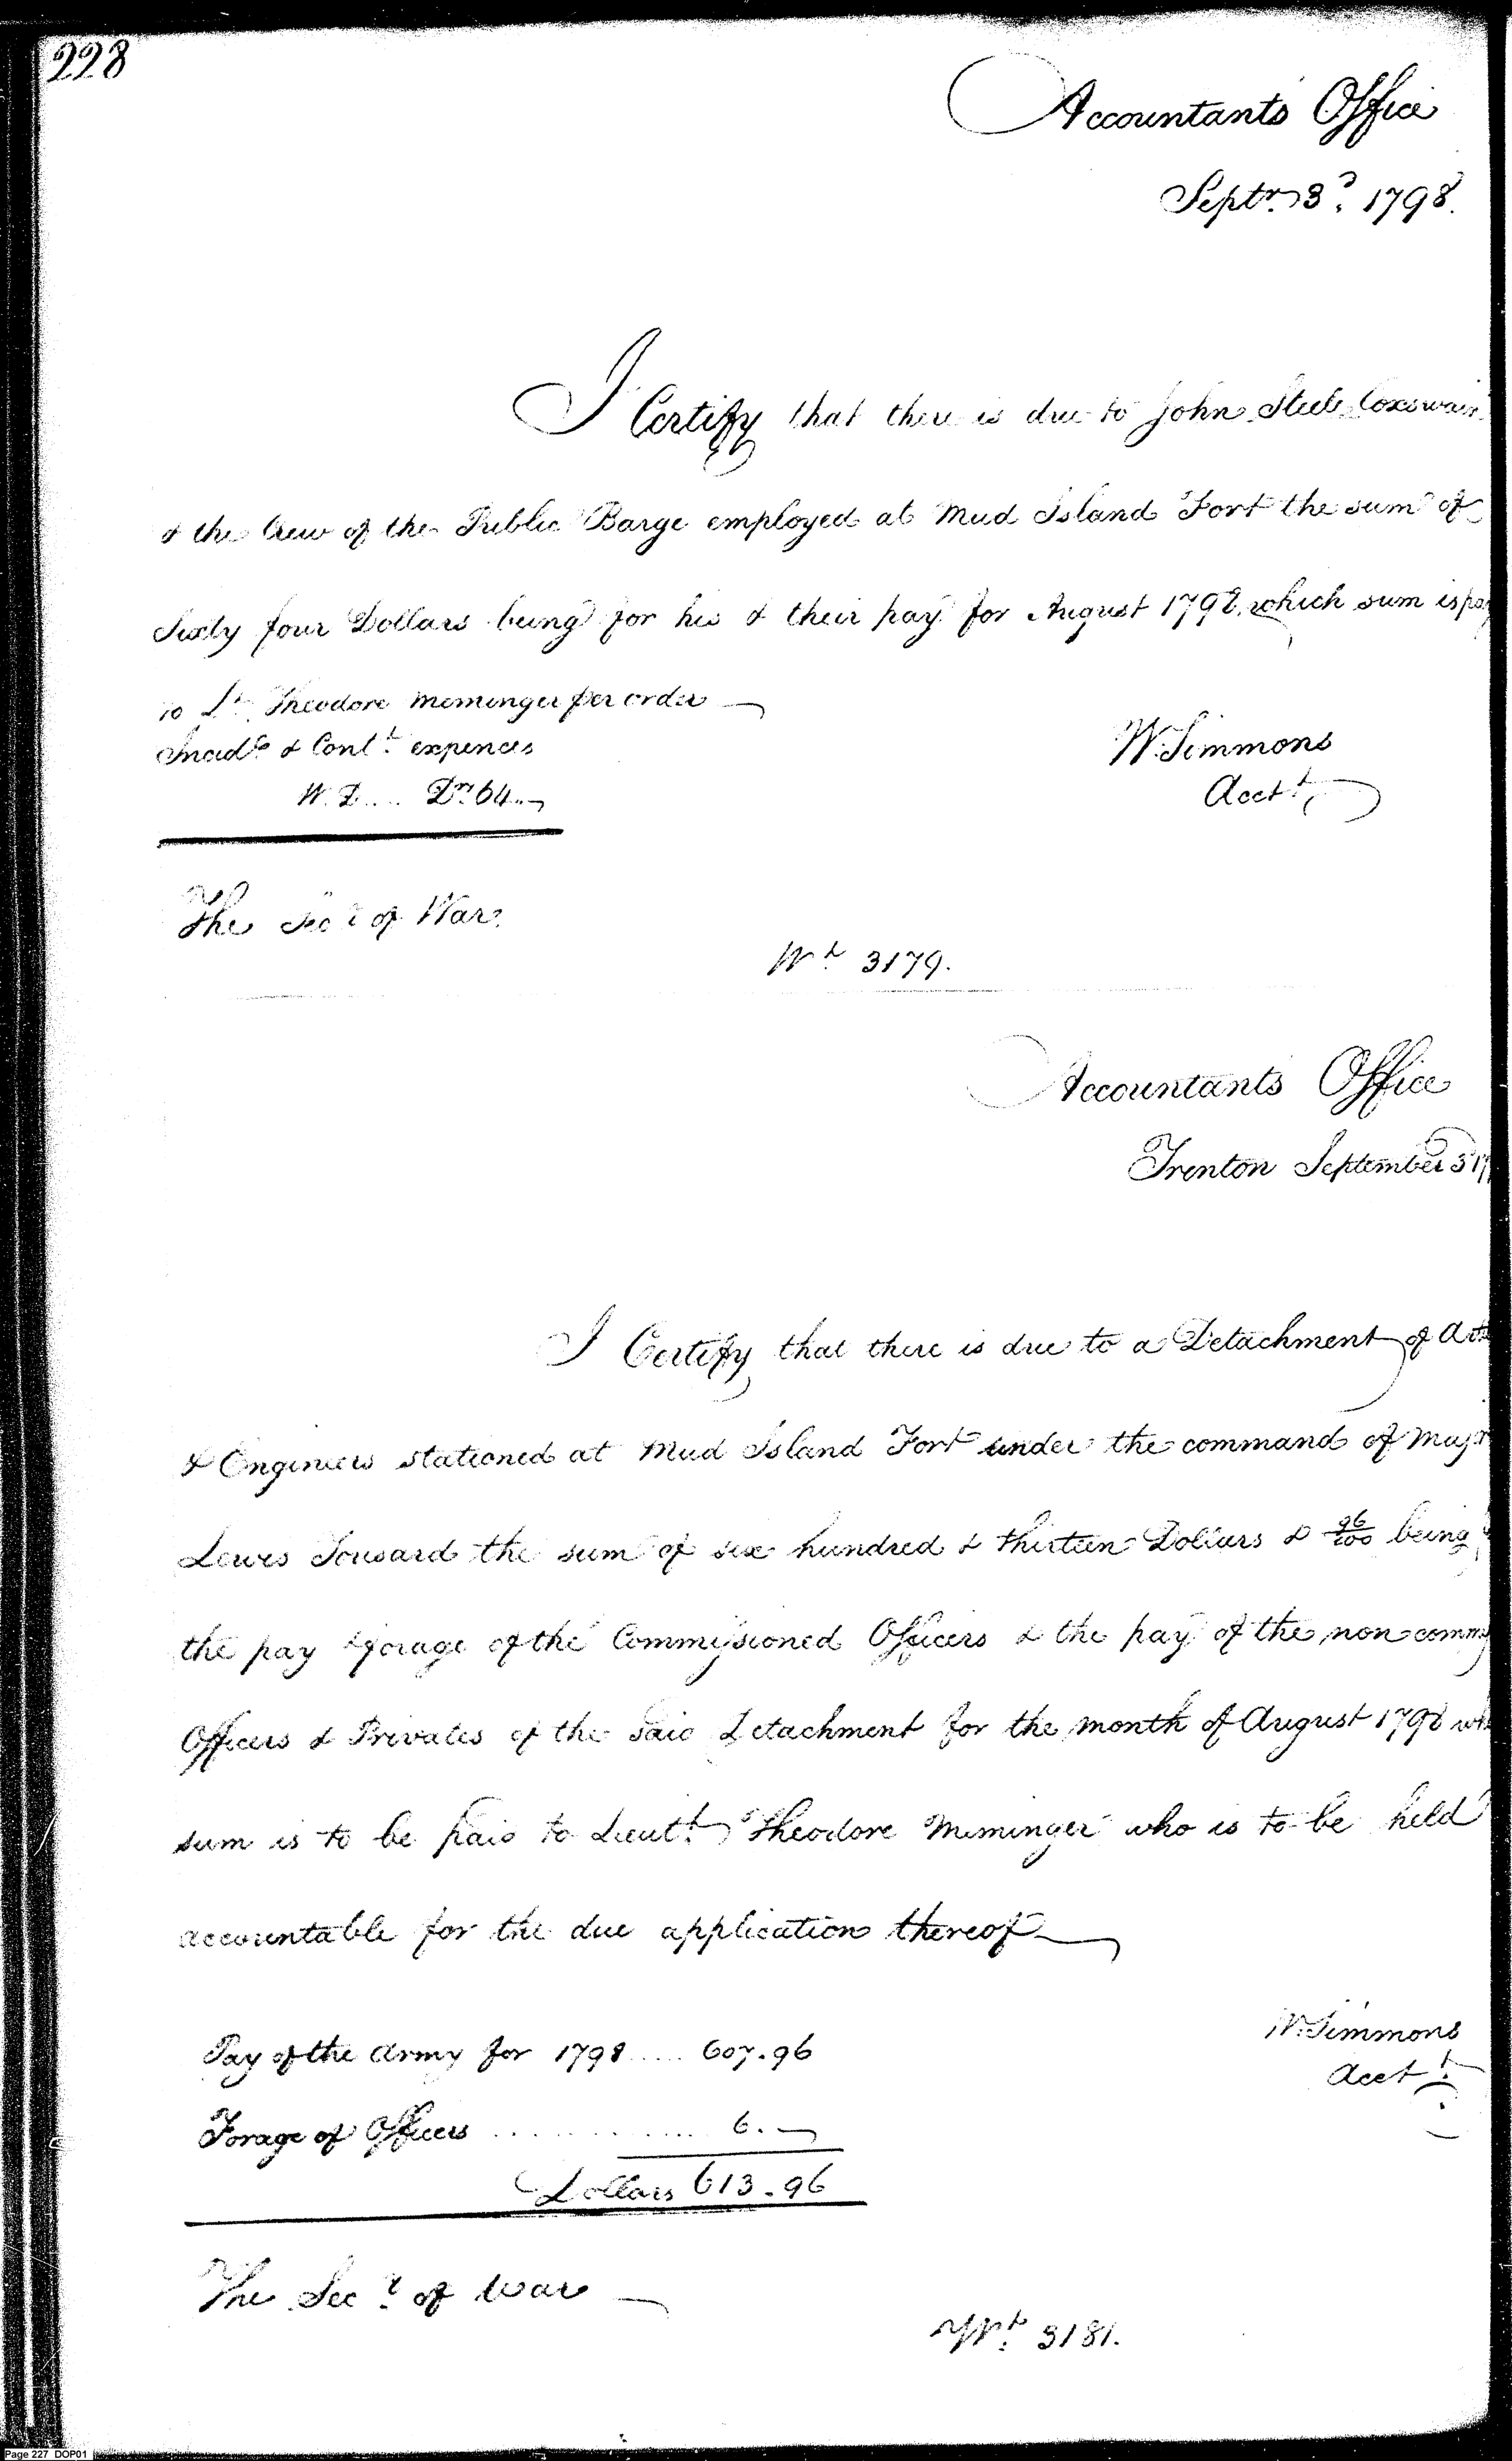 228
Accountants Office
Septr. 3d. 1798.
I Certify that there is due to John Steele Coxswain
& the Crew of the Public Barge employed at Mud Island Fort the sum of
Sixty four Dollars being for his & their pay for August 1798, which sum is pay
to Lt. Theodore Memminger per order
Incidl. & Contt. expences
W. D.... Drs. 64..
W. Simmons
Acctt.
The Secy. of War.
Wt. 3179.
Accountants Office
Trenton September 3 17
I Certify that there is due to a Detachment of Art
& Engineers stationed at Mud Island Fort under the command of Majr
Lewis Tousard the sum of six hundred & thirteen Dollars & 96/100 being
the pay & forage of the Commissioned Officers & the pay of the non commis
Officers & Privates of the said Detachment for the month of August 1798 wh
sum is to be paid to Lieutt. Theodore Meminger who is to be held
accountable for the due application thereof
W. Simmons
Acctt.
Pay of the Army for 1798..... 607.96
Forage of Officers ............. 6.
Dollars 613.96
The Secy. of War
Wt. 3181.
Page 227 DOP01